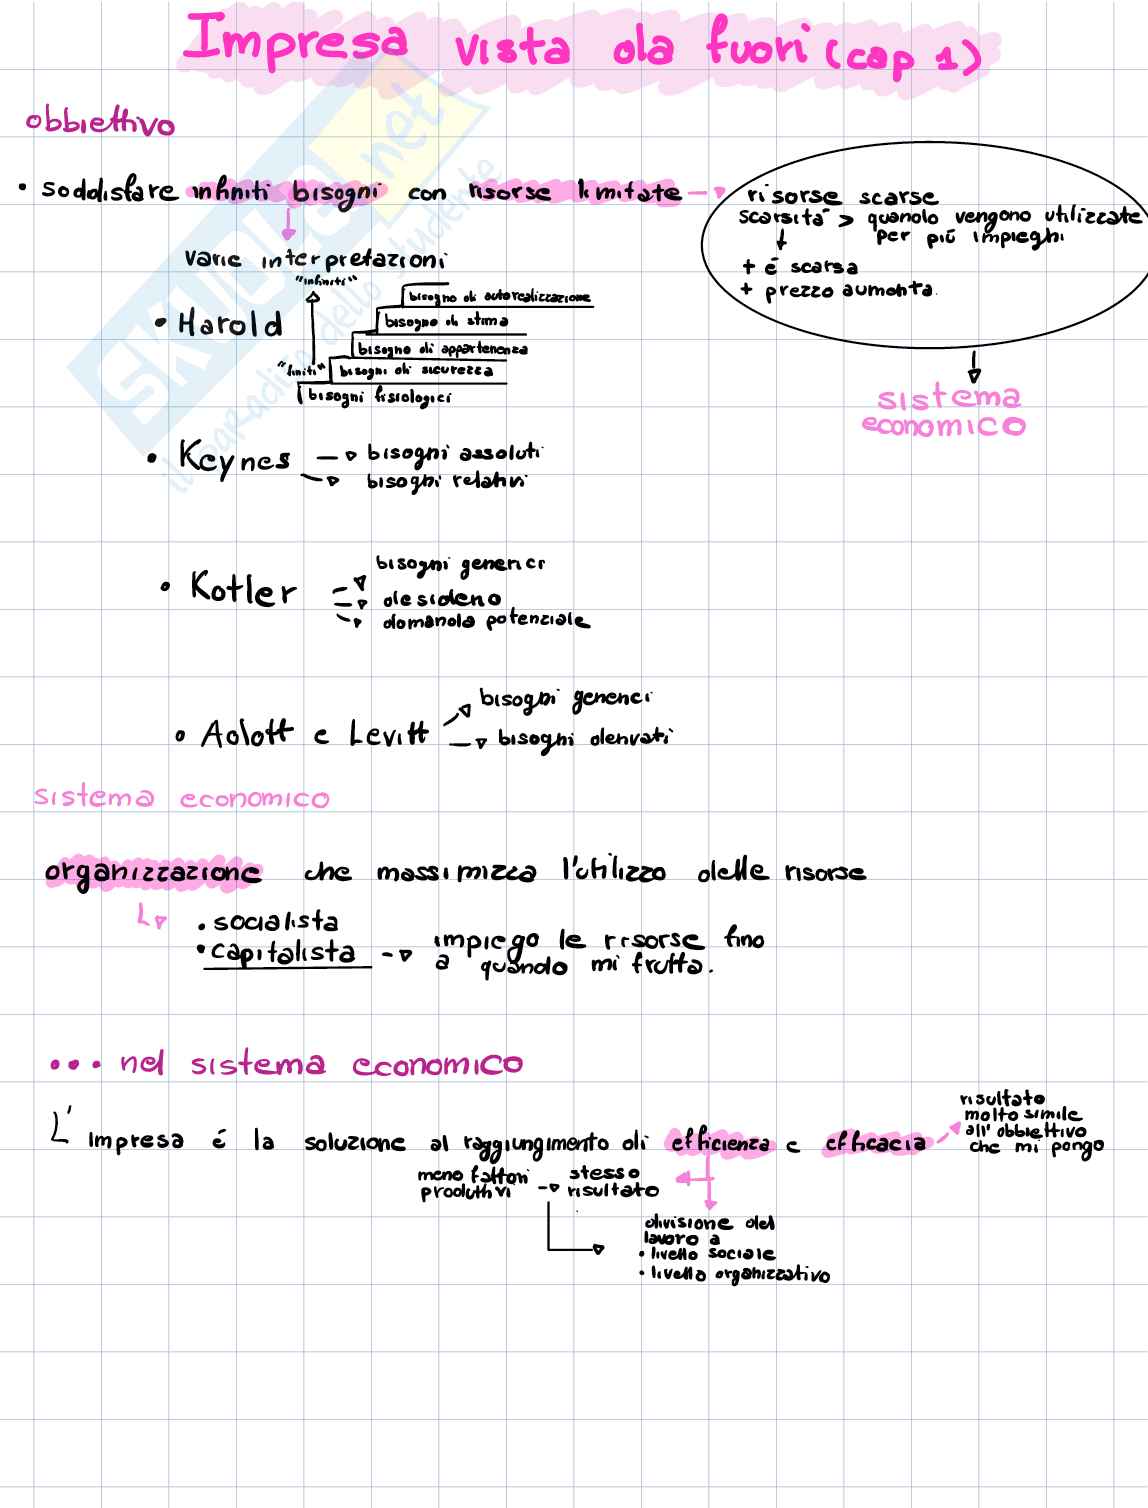 Impresa vista da fuori (cap 1)
obbiettivo
• soddisfare infiniti bisogni con risorse limitate
risorse scarse
scarsità > quando vengono utilizzate
per più impieghi
+ è scarsa
+ prezzo aumenta.
sistema
economico
varie interpretazioni
"infiniti"
• Harold
bisogno di autorealizzazione
bisogno di stima
bisogno di appartenenza
"finiti"
bisogni di sicurezza
bisogni fisiologici
• Keynes
bisogni assoluti
bisogni relativi
• Kotler
bisogni generici
desiderio
domanda potenziale
• Adott e Levitt
bisogni generici
bisogni derivati
sistema economico
organizzazione che massimizza l'utilizzo delle risorse
• socialista
• capitalista
impiego le risorse fino
a quando mi frutta.
... nel sistema economico
L'impresa é la soluzione al raggiungimento di efficienza e efficacia
risultato
molto simile
all'obbiettivo
che mi pongo
meno fattori
produttivi
stesso
risultato
divisione del
lavoro a
• livello sociale
• livello organizzativo
SKUOLA.net
il paradiso dello studente